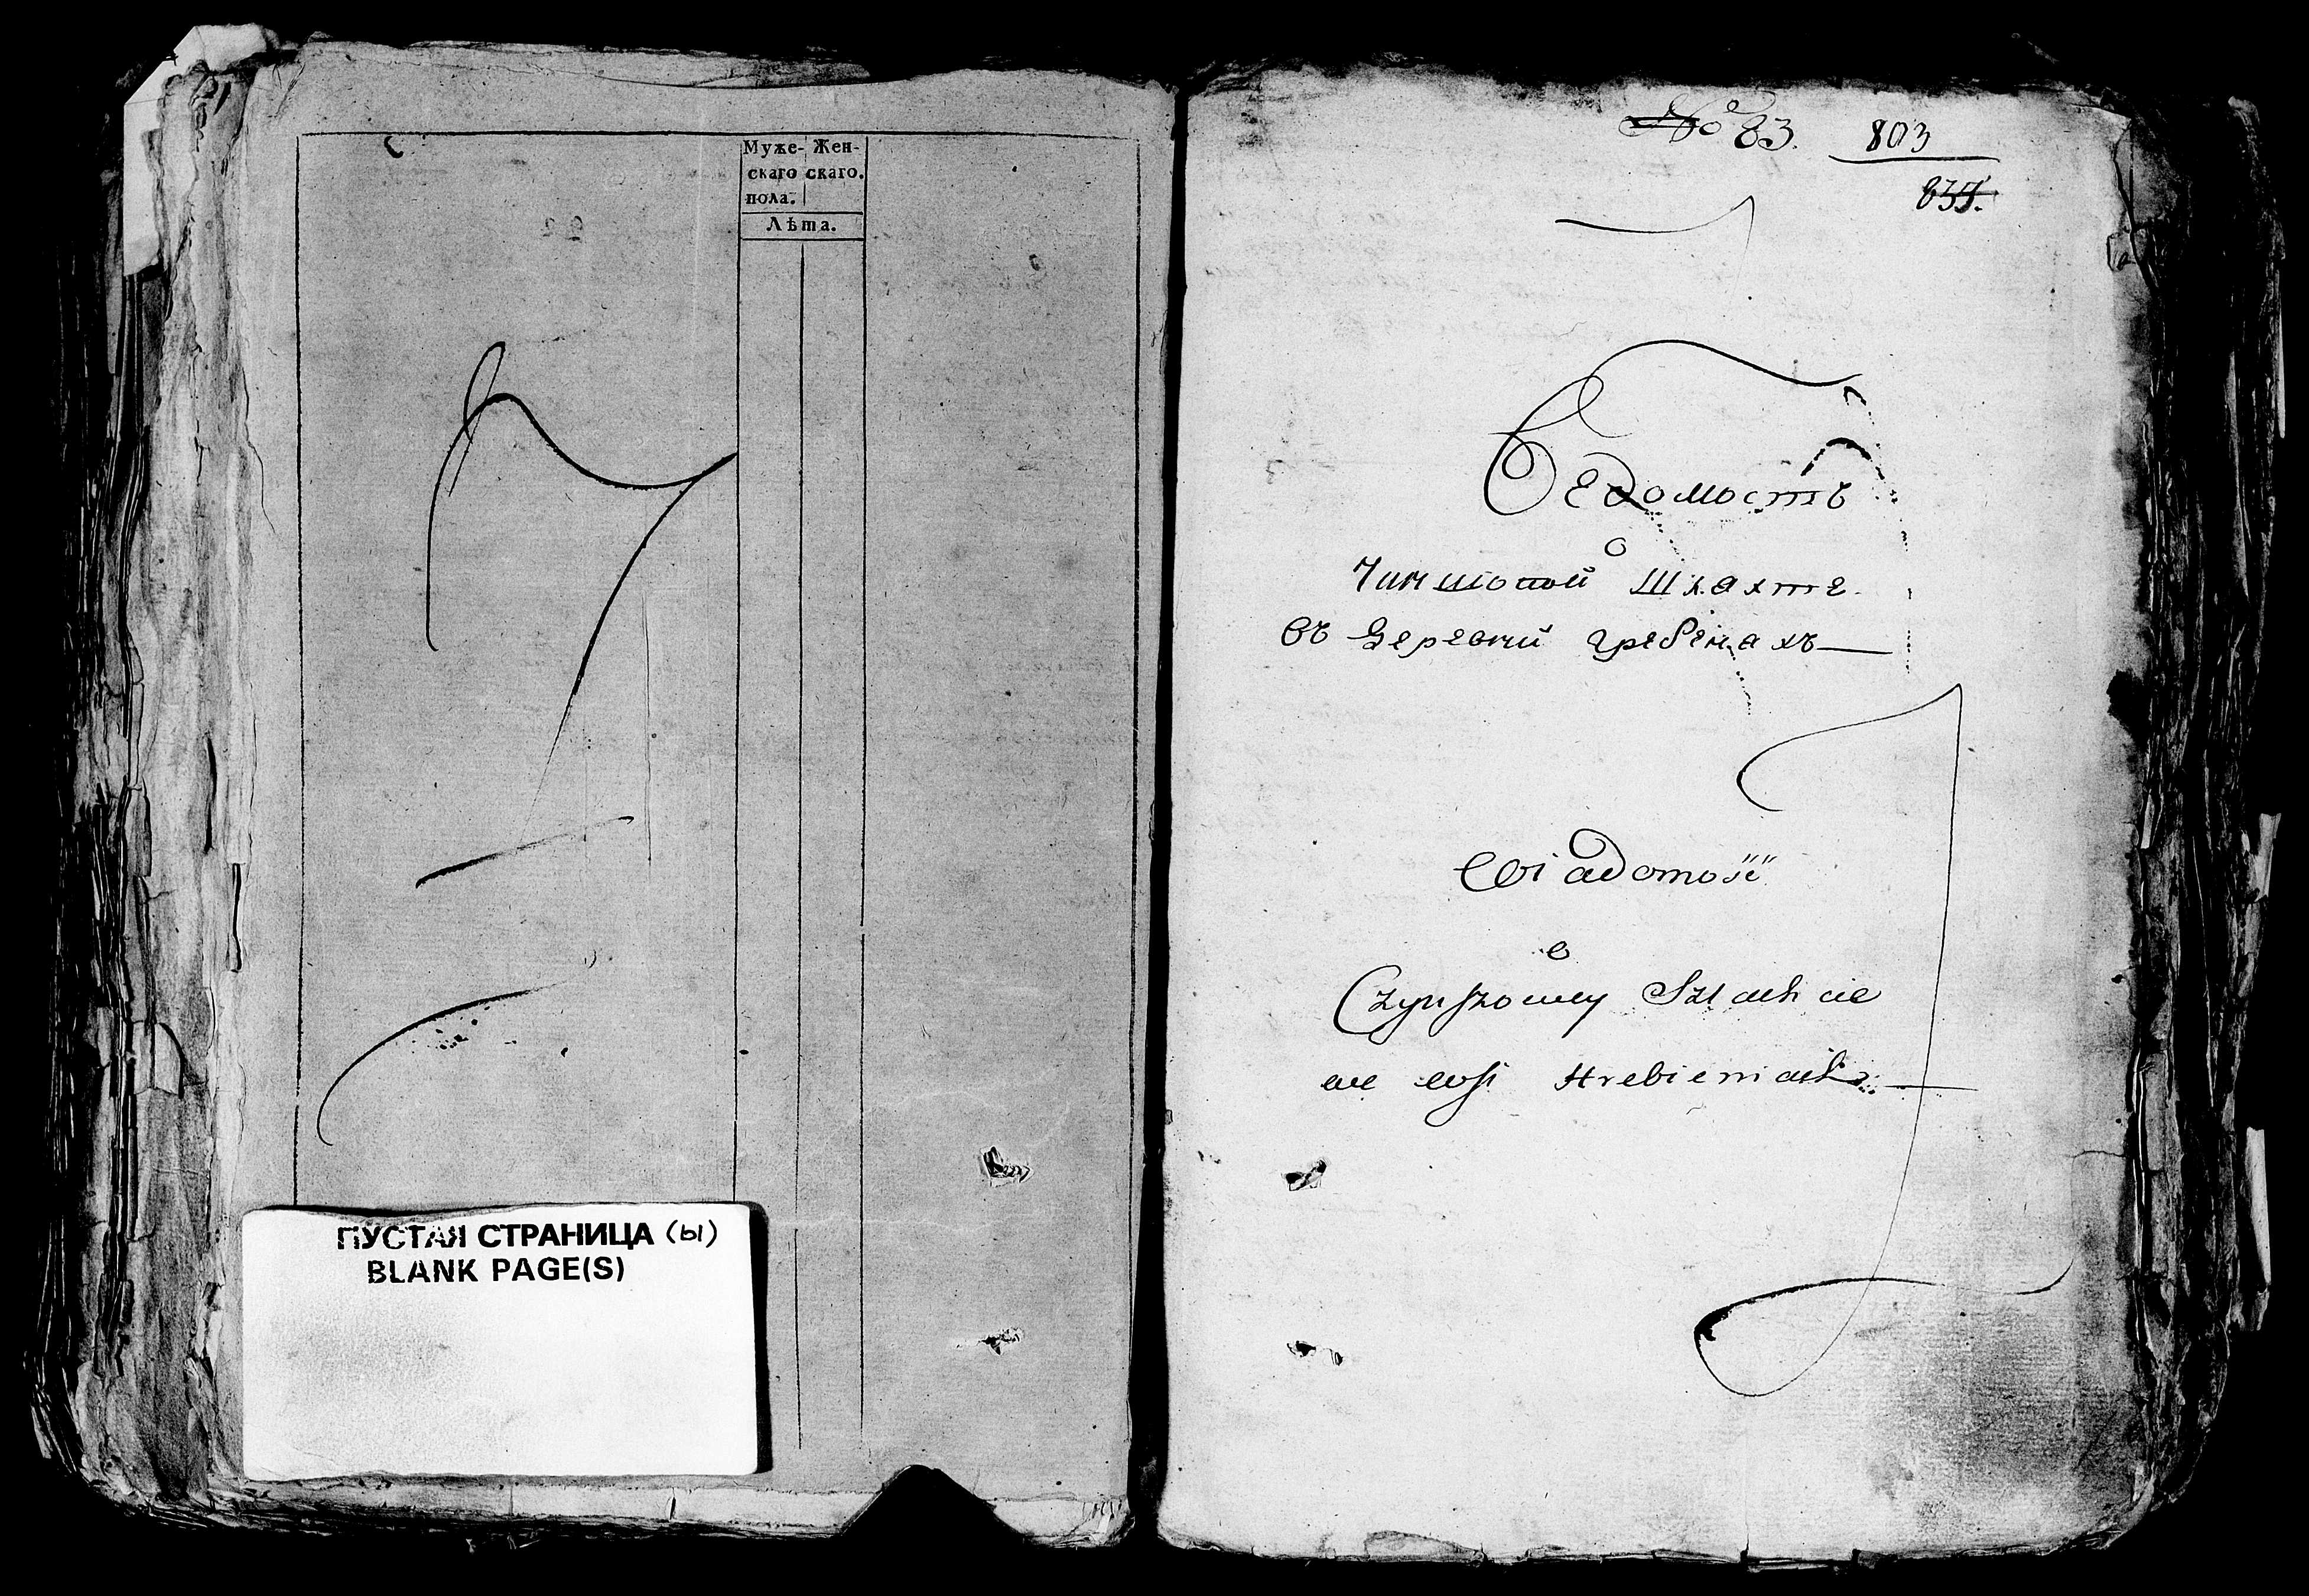 Муже- Жен-
скаго скаго.
пола.
Лѣта.
ПУСТАЯ СТРАНИЦА (ы)
BLANK PAGE(S)
№ 83. 803
Ведомость
о
Чиншовой Шляхте.
въ Деревни гребенахъ
Wiadomość
o
Czynszowey Szlachcie
we wsi Hrebieniach